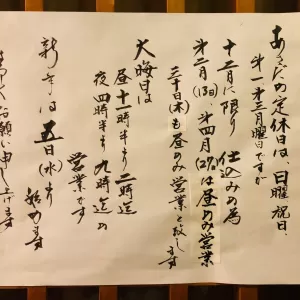 あさだの定休日は、日曜 祝日、
第一第三月曜日ですが
十二月に限り 仕込みの為
第二(13日) 第四月(27)は昼のみ営業
三十日(木)も昼のみ営業と致します
大晦日は
昼十一時半より二時迄
夜四時半より九時迄の
営業です
新年は五日(水)より始めます
お願い申し上げます